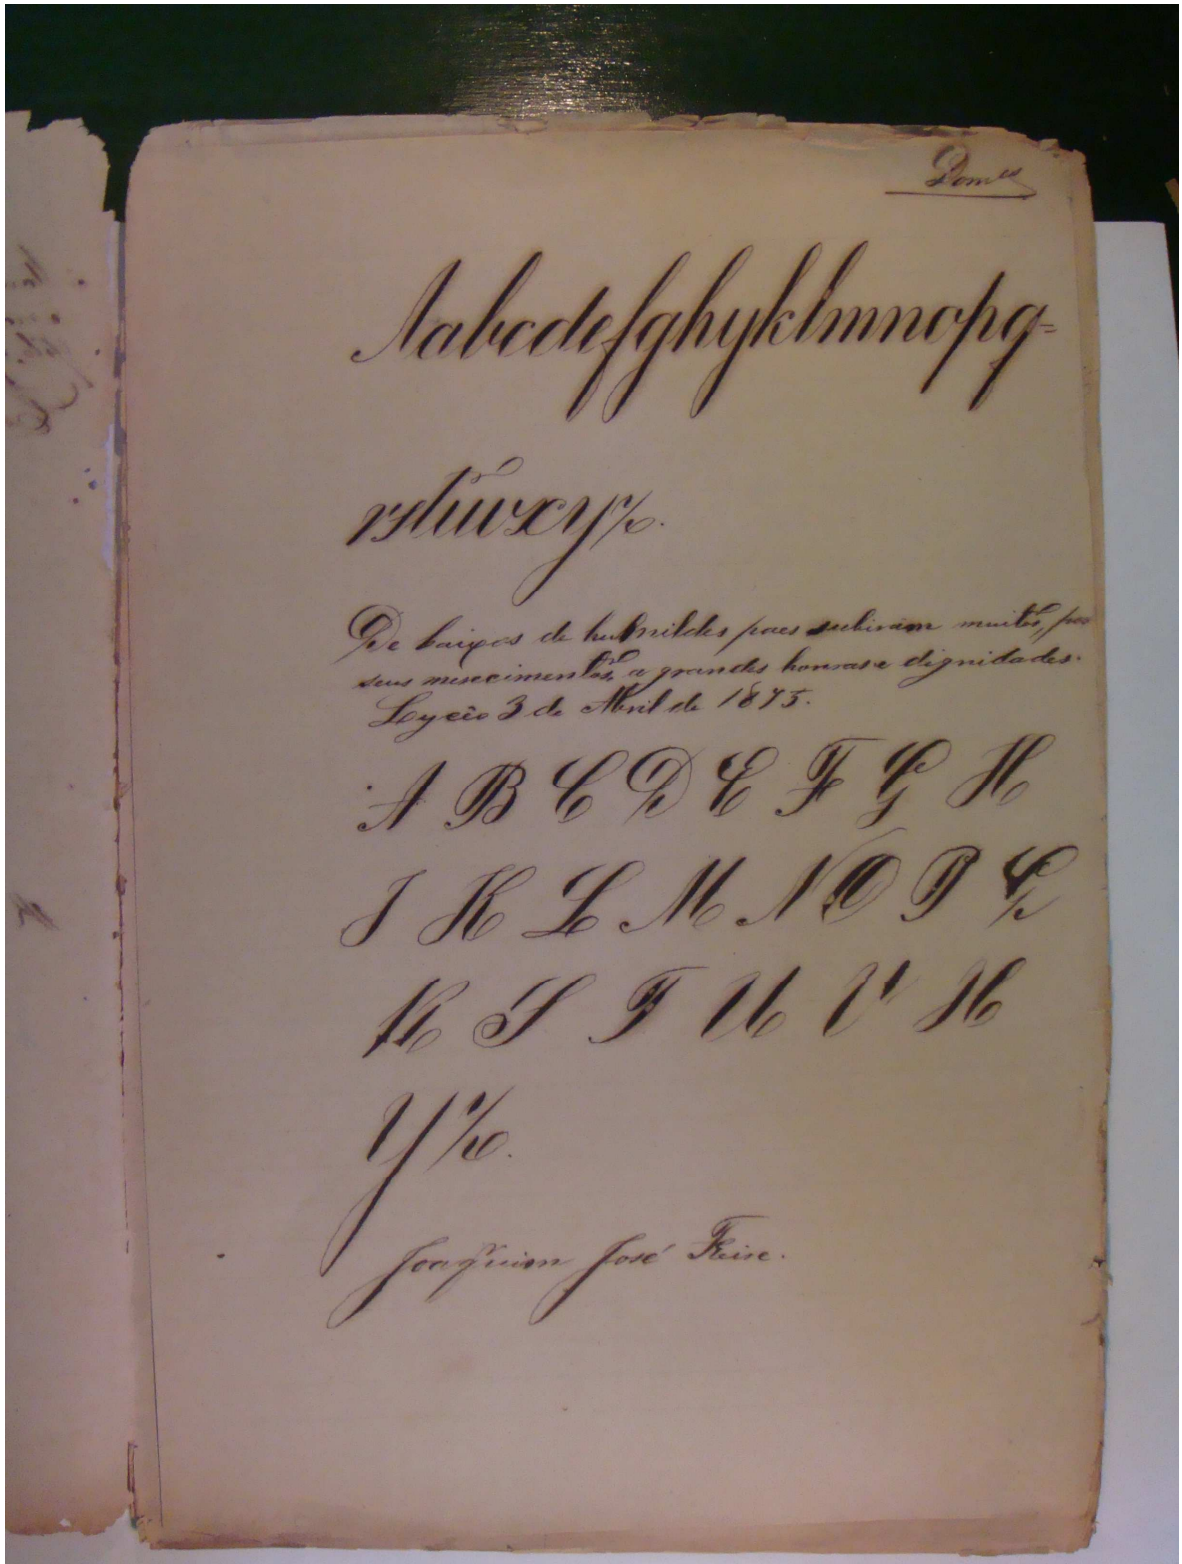 Aabcdefghyklmnopq=
rstuvxy%.
De baixos de hulmildes paes subiram muitos, por
seus merecimentos, a grandes honras e dignidades.
Lyceo 3 de Abril de 1875.
A B C D E F G H
J K L M N O P Q
R S T U V X
Y%.
Joaquim José Freire.